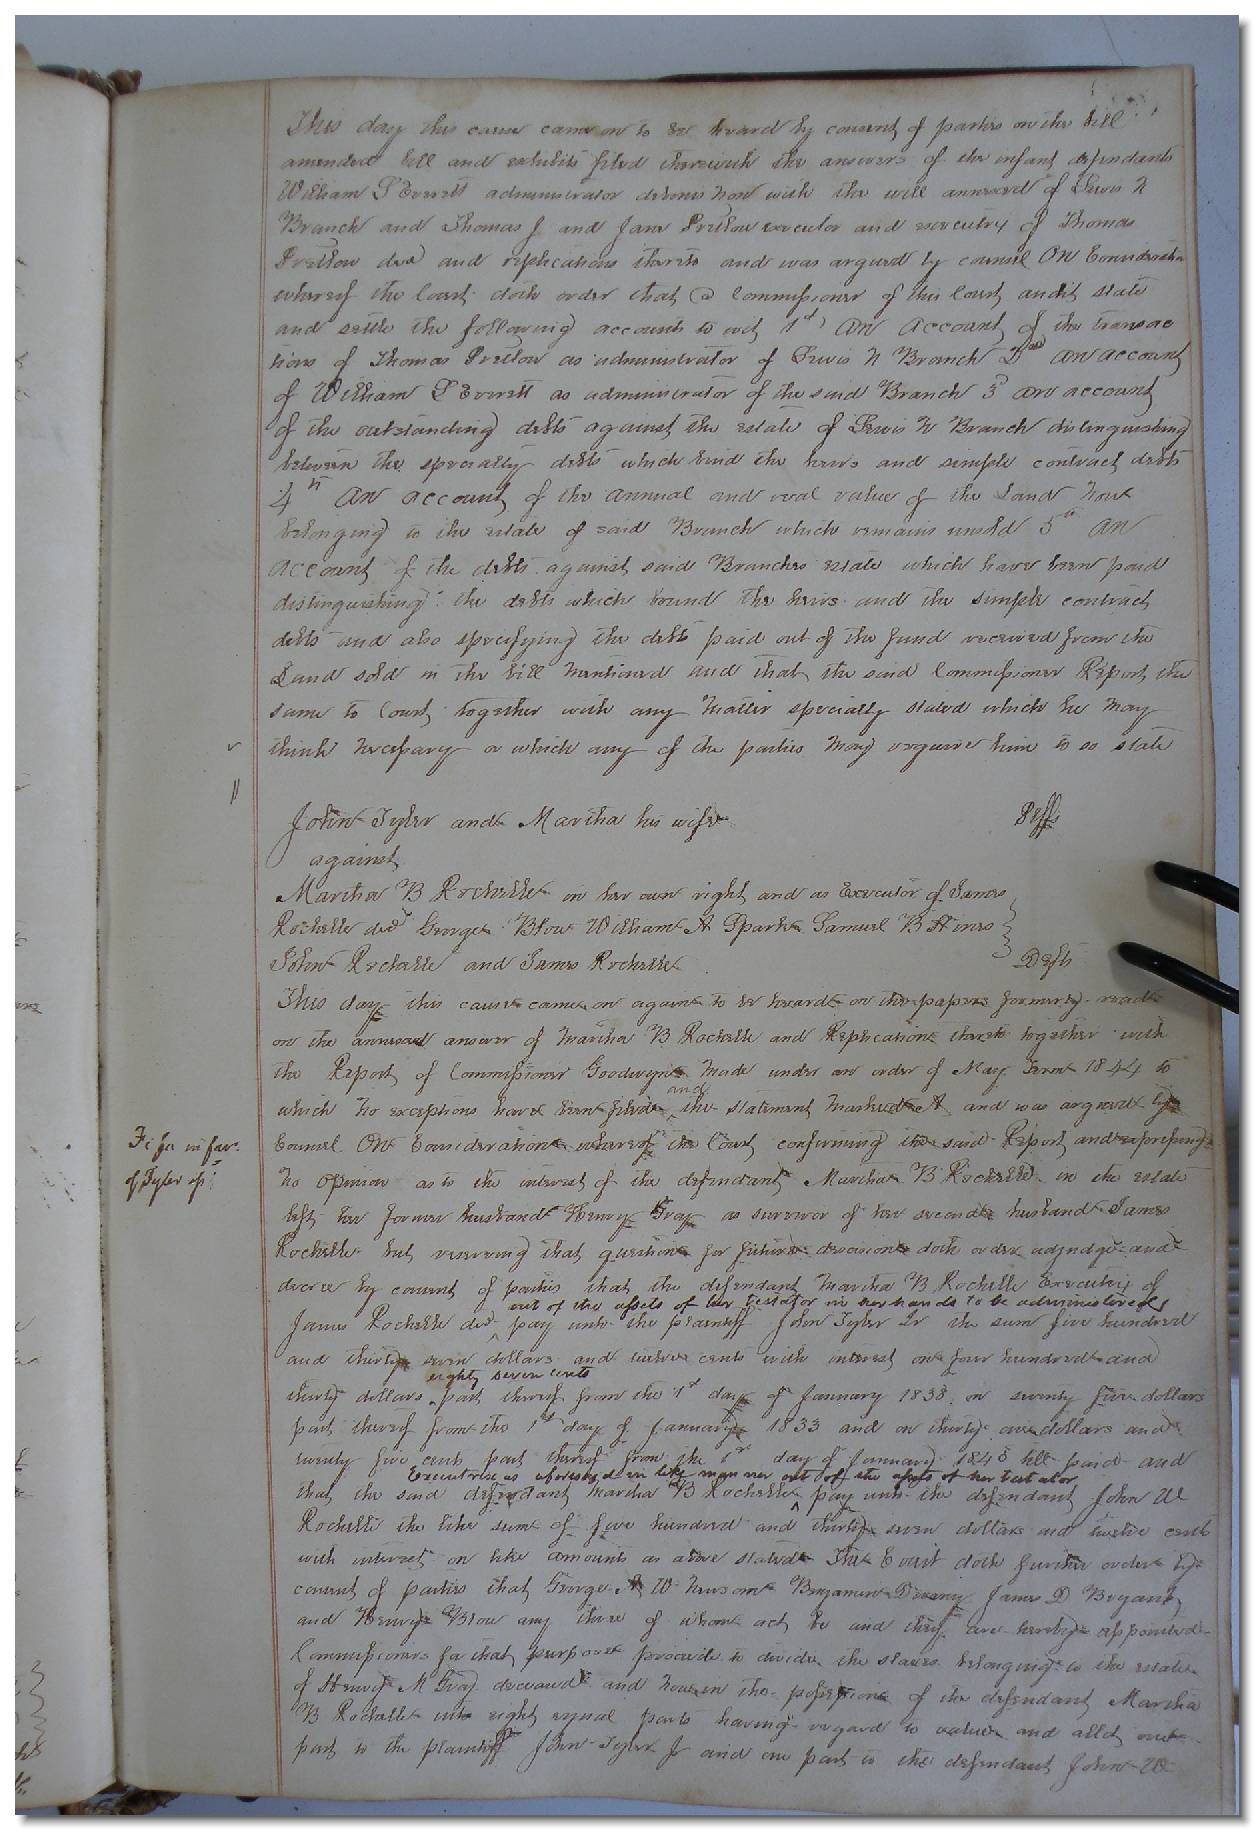 This day this cause came on to be heard by consent of parties on the bill
amended bill and exhibits filed therewith the answers of the infant defendants
William S Everett administrator debonis non with the will annexed of Lewis N
Branch and Thomas J. and Jane Pretlow executor and executrix of Thomas
Pretlow decd and replications thereto and was argued by counsel On Consideration
whereof the Court doth order that a Commissioner of this Court audit state
and settle the following accounts to wit 1st An Account of the transac
tions of Thomas Pretlow as administrator of Lewis N Branch 2nd an account
of William S Everett as administrator of the said Branch 3d an account
of the outstanding debts against the estate of Lewis N Branch distinguishing
between the specialty debts which bind the heirs and simple contract debts
4th An account of the annual and real value of the Land now
belonging to the estate of said Branch which remains unsold 5th An
account of the debts against said Branches estate which have been paid
distinguishing the debts which bound the heirs and the simple contract
debts and also specifying the debts paid out of the fund received from the
Land sold in the bill mentioned and that the said Commissioner Report the
same to Court together with any matter specially stated which he may
think necessary or which any of the parties may require him to so state
John Tyler and Martha his wife Plffs
against
Martha B Rochelle in her own right and as Executor of James
Rochelle decd George Blow William A Spark Samuel B Hines
John Rochelle and James Rochelle Defts
This day this cause came on again to be heard on the papers formerly read
on the answer of Martha B Rochelle and Replication thereto together with
the Report of Commissioner Goodwyn made under an order of May Term 1844 to
and
which no exceptions have been filed the statement marked A and was argued by
Counsel On Consideration whereof the Court confirming the said Report and expressing
Fi fa in fav.
of Tyler
no opinion as to the interest of the defendant Martha B Rochelle in the estate
left her former husband Henry Gray as survivor of her second husband James
Rochelle but reserving that question for future decision doth order adjudge and
decree by consent of parties that the defendant Martha B Rochelle Executrix of
out of the assets of her testator in her hands to be administered
James Rochelle decd pay unto the plaintiff John Tyler Jr the sum five hundred
and thirty seven dollars and twelve cents with interest on four hundred and
eighty seven cents
thirty dollars part thereof from the 1st day of January 1838 on seventy five dollars
part thereof from the 1st day of January 1833 and on thirty one dollars and
twenty five cents part thereof from the 1st day of January 1843 till paid and
Executrix as aforesaid in like manner out of the assets of her testator
that the said defendant Martha B Rochelle pay unto the defendant John W
Rochelle the like sum of five hundred and thirty seven dollars and twelve cents
with interest on like amounts as above stated The Court doth further order by
consent of parties that George A W Newsom Benjamin Devany James D Bryant
and Henry Blow any three of whom act be and they are hereby appointed
Commissioners for that purpose proceed to divide the slaves belonging to the estate
of Henry M Gray deceased and now in the possession of the defendant Martha
B Rochelle into eight equal parts having regard to value and allot one
part to the plaintiff John Tyler Jr and one part to the defendant John W